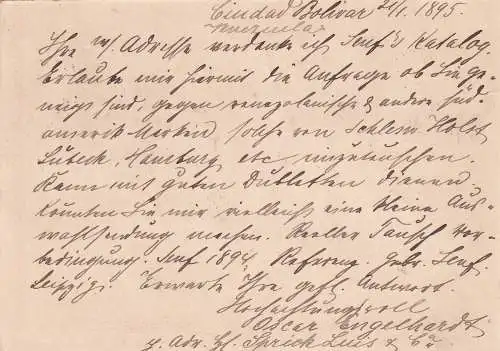 Ciudad Bolivar 24/1. 1895.
Venezuela
Ihre w/ Adresse verdanke ich Senf's Katalog.
Erlaube mir hiermit die Anfrage ob Sie ge-
neigt sind, gegen venezolanische & andere süd-
amerik. Marken, solche von Schlesw. Holst
Lübeck, Hamburg etc einzutauschen.
Kann mit guten Dubletten dienen.
Könnten Sie mir vielleicht eine kleine Aus-
wahlsendung machen. Reeller Tausch vor-
bedingung. Senf 1894. Referenz. Gebr. Senf,
Leipzig. Erwarte Ihre gefl. Antwort.
Hochachtungsvoll
Oscar Engelhardt
p. Adr. HH. Sprick Luis & Co